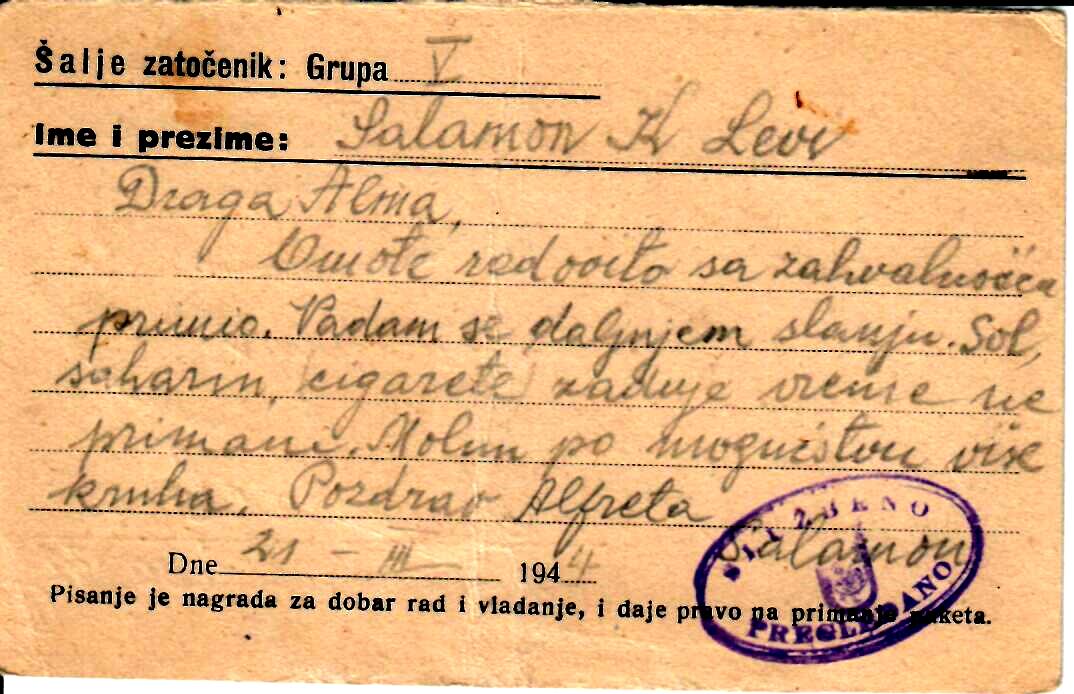 Šalje zatočenik: Grupa V
Ime i prezime: Salamon K Levi
Draga Alma,
Omote redovito sa zahvalnošću
primio. Nadam se daljnjem slanju. Sol,
saharin, cigarete zadnje vreme ne
primam. Molim po mogućstvu više
kruha. Pozdrav Alfreta
Salamon
Dne 21 - III 1944
Pisanje je nagrada za dobar rad i vladanje, i daje pravo na primanje paketa.
SLUŽBENO
PREGLEDANO